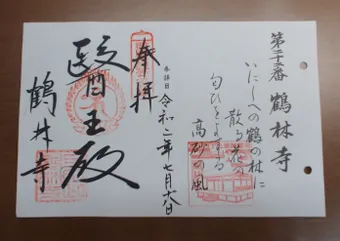 第二十二番 鶴林寺
いにしへの鶴の林に
散る花の
匂ひをよする
高砂の風
参詣日 令和二年七月六日
奉拝
医王殿
鶴林寺